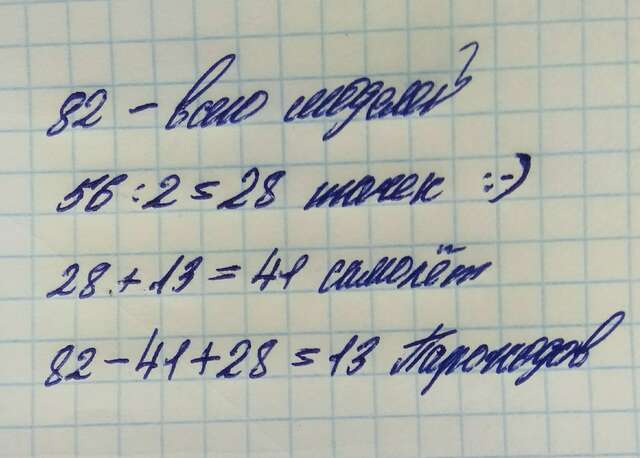 82 - всего моделей
56 : 2 = 28 тачек :-)
28 + 13 = 41 самолёт
82 - 41 + 28 = 13 Пароходов